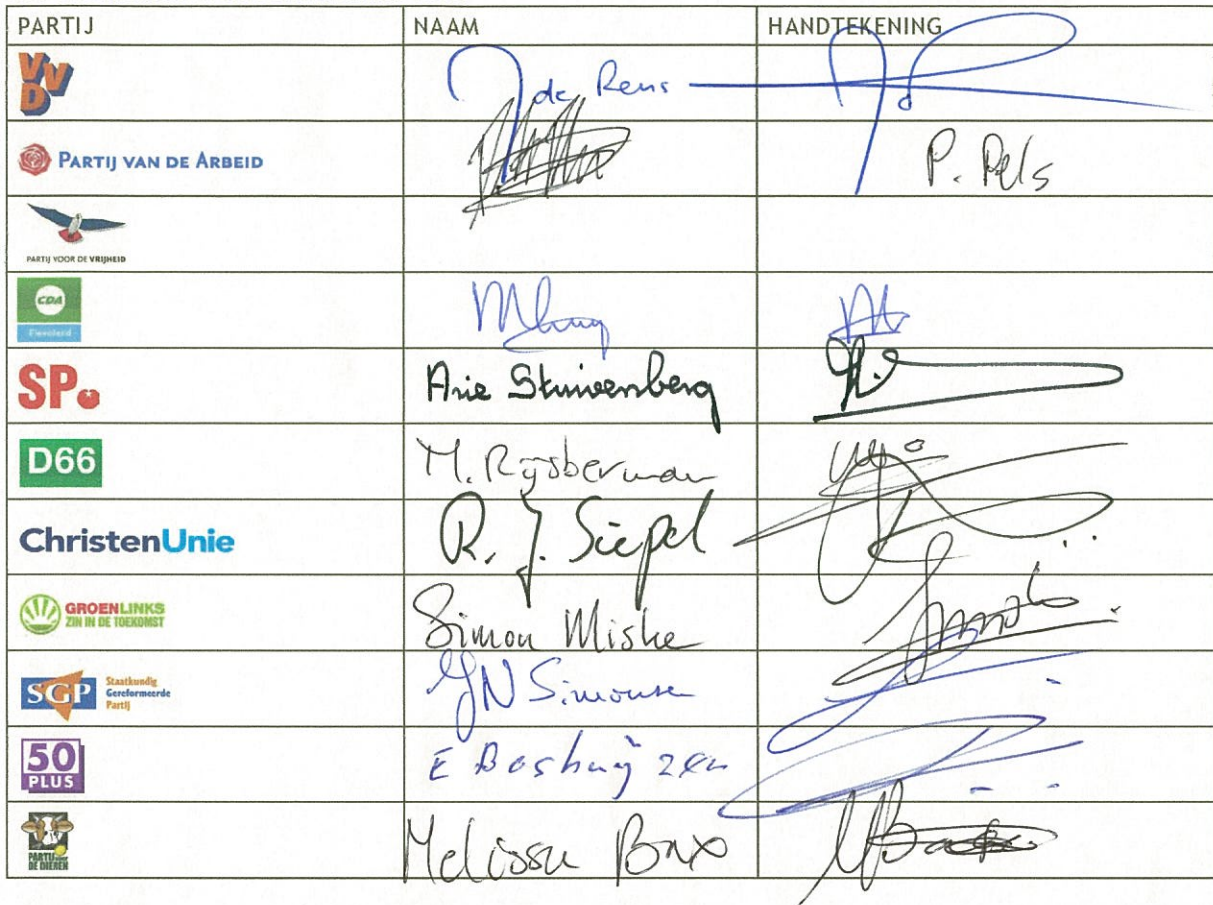 PARTIJ NAAM HANDTEKENING
VVD de Reus
PARTIJ VAN DE ARBEID P. Pels
PARTIJ VOOR DE VRIJHEID
CDA
Flevoland
SP. Arie Stuivenberg
D66 M. Rijsberman
ChristenUnie R. J. Siepel
GROENLINKS
ZIN IN DE TOEKOMST Simon Miske
SGP Staatkundig
Gereformeerde
Partij Simonse
50
PLUS E Boshuijzen
PARTIJ VOOR
DE DIEREN Melissa Bax